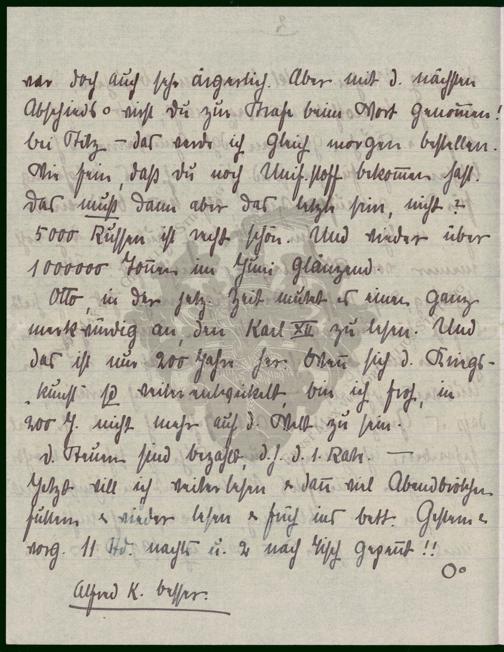 war doch auch sehr ärgerlich. Aber mit d. nächsten
Abschieds o wirst Du zur Strafe beim Wort genommen!
bei – das werde ich gleich morgen bestellen.
Wie fein, daß Du noch Unif.stoff bekommen hast
das muß dann aber das letzte sein, nicht?
5000 Russen ist recht schön. Und wieder über
1000000 Tonnen im Juni glänzend.
Otto, in der jetz. Zeit mutet es einen ganz
merkwürdig an, den Karl XII zu lesen. Und
das ist nur 200 Jahre her. Wenn sich d. Kriegs-
kunst so weiterentwickelt, bin ich froh, in
200 J. nicht mehr auf d. Welt zu sein.
d. Steuern sind bezahlt, d. h. d. 1. Rate. —
Jetzt will ich weiterlesen & dann viel Abendbrötchen
futtern & wieder lesen & früh ins Bett. Gestern &
vorg. 11 Std. nachts u. 2 nach Tisch gepennt!!
Alfred K. besser.